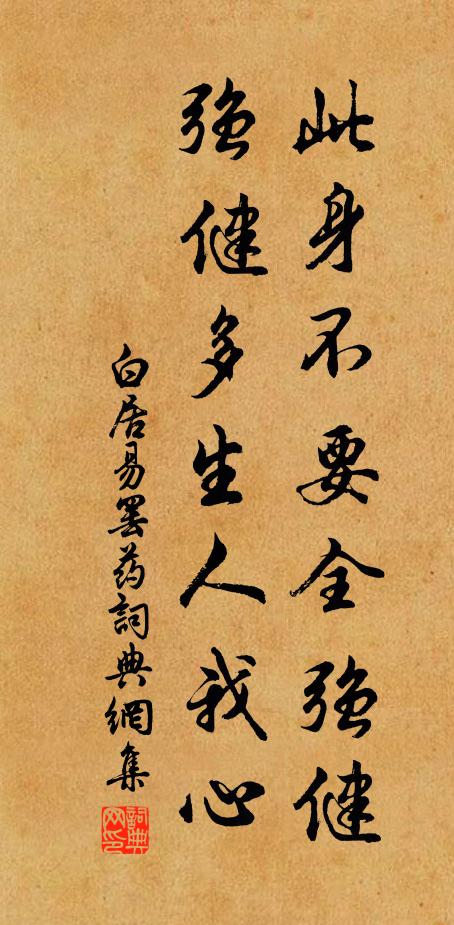 此身不要全强健
强健多生人我心
白居易罢药詞典網集
詞典网印